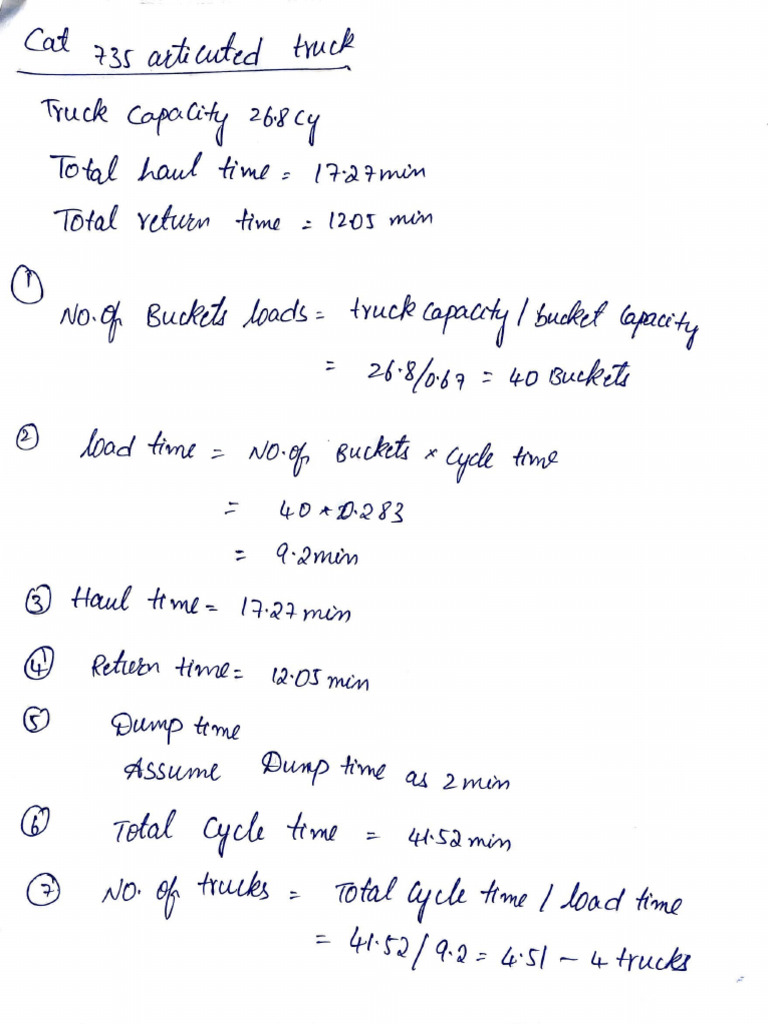 Cat 735 articuted truck
Truck Capacity 26.8cy
Total haul time = 17.27min
Total return time = 1205 min
①
No. of Buckets loads = truck capacity / bucket capacity
= 26.8/0.67 = 40 Buckets
② load time = No. of Buckets * cycle time
= 40 * 0.283
= 9.2min
③ Haul time = 17.27 min
④ Return time = 12.05 min
⑤ Dump time
Assume Dump time as 2 min
⑥ Total Cycle time = 41.52 min
⑦ No. of trucks = Total cycle time / load time
= 41.52 / 9.2 = 4.51 – 4 trucks